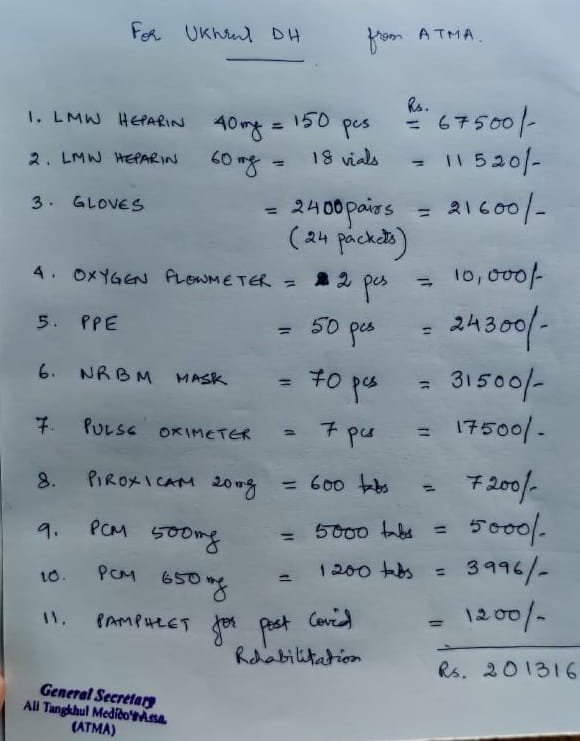 For Ukhrul DH from ATMA.
1. LMW HEPARIN 40mg = 150 pcs Rs. = 67500/-
2. LMW HEPARIN 60mg = 18 vials = 11520/-
3. GLOVES = 2400 pairs = 21600/-
(24 packets)
4. OXYGEN FLOWMETER = 2 pcs = 10,000/-
5. PPE = 50 pcs = 24300/-
6. NRBM MASK = 70 pcs = 31500/-
7. PULSE OXIMETER = 7 pcs = 17500/-
8. PIROXICAM 20mg = 600 tabs = 7200/-
9. PCM 500mg = 5000 tabs = 5000/-
10. PCM 650mg = 1200 tabs = 3996/-
11. PAMPHLET for post Covid = 1200/-
Rehabilitation
Rs. 201316
General Secretary
All Tangkhul Medico's Assn.
(ATMA)